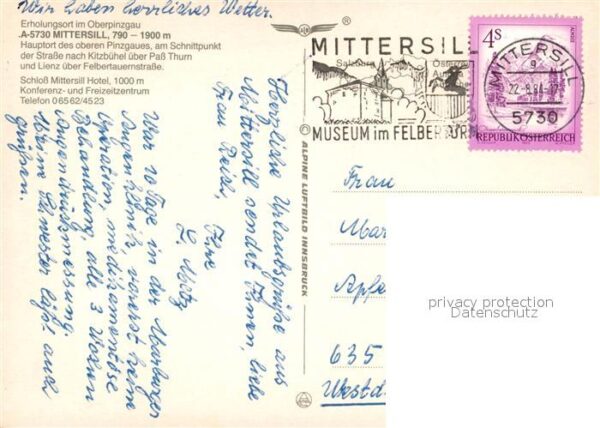 Wir haben herrliches Wetter.
Erholungsort im Oberpinzgau
A-5730 MITTERSILL, 790 – 1900 m
Hauptort des oberen Pinzgaues, am Schnittpunkt
der Straße nach Kitzbühel über Paß Thurn
und Lienz über Felbertauernstraße.
Schloß Mittersill Hotel, 1000 m
Konferenz- und Freizeitzentrum
Telefon 06562/4523
Herzliche Urlaubsgrüße aus
Mittersill sendet Ihnen, liebe
Frau Reich, Ihre
War 10 Tage in der Marburger
Augenklinik, vorerst keine
Operation, medikamentöse
Behandlung, alle 3 Wochen
Augendruckmessung.
Meine Schwester läßt auch
grüßen.
®
ALPINE LUFTBILD INNSBRUCK
MITTERSILL
MUSEUM im FELBERTURM
4S
REPUBLIK ÖSTERREICH
MITTERSILL
22.-8.84-17
5730
Frau
Mar
Apfe
635
Westd
privacy protection
Datenschutz